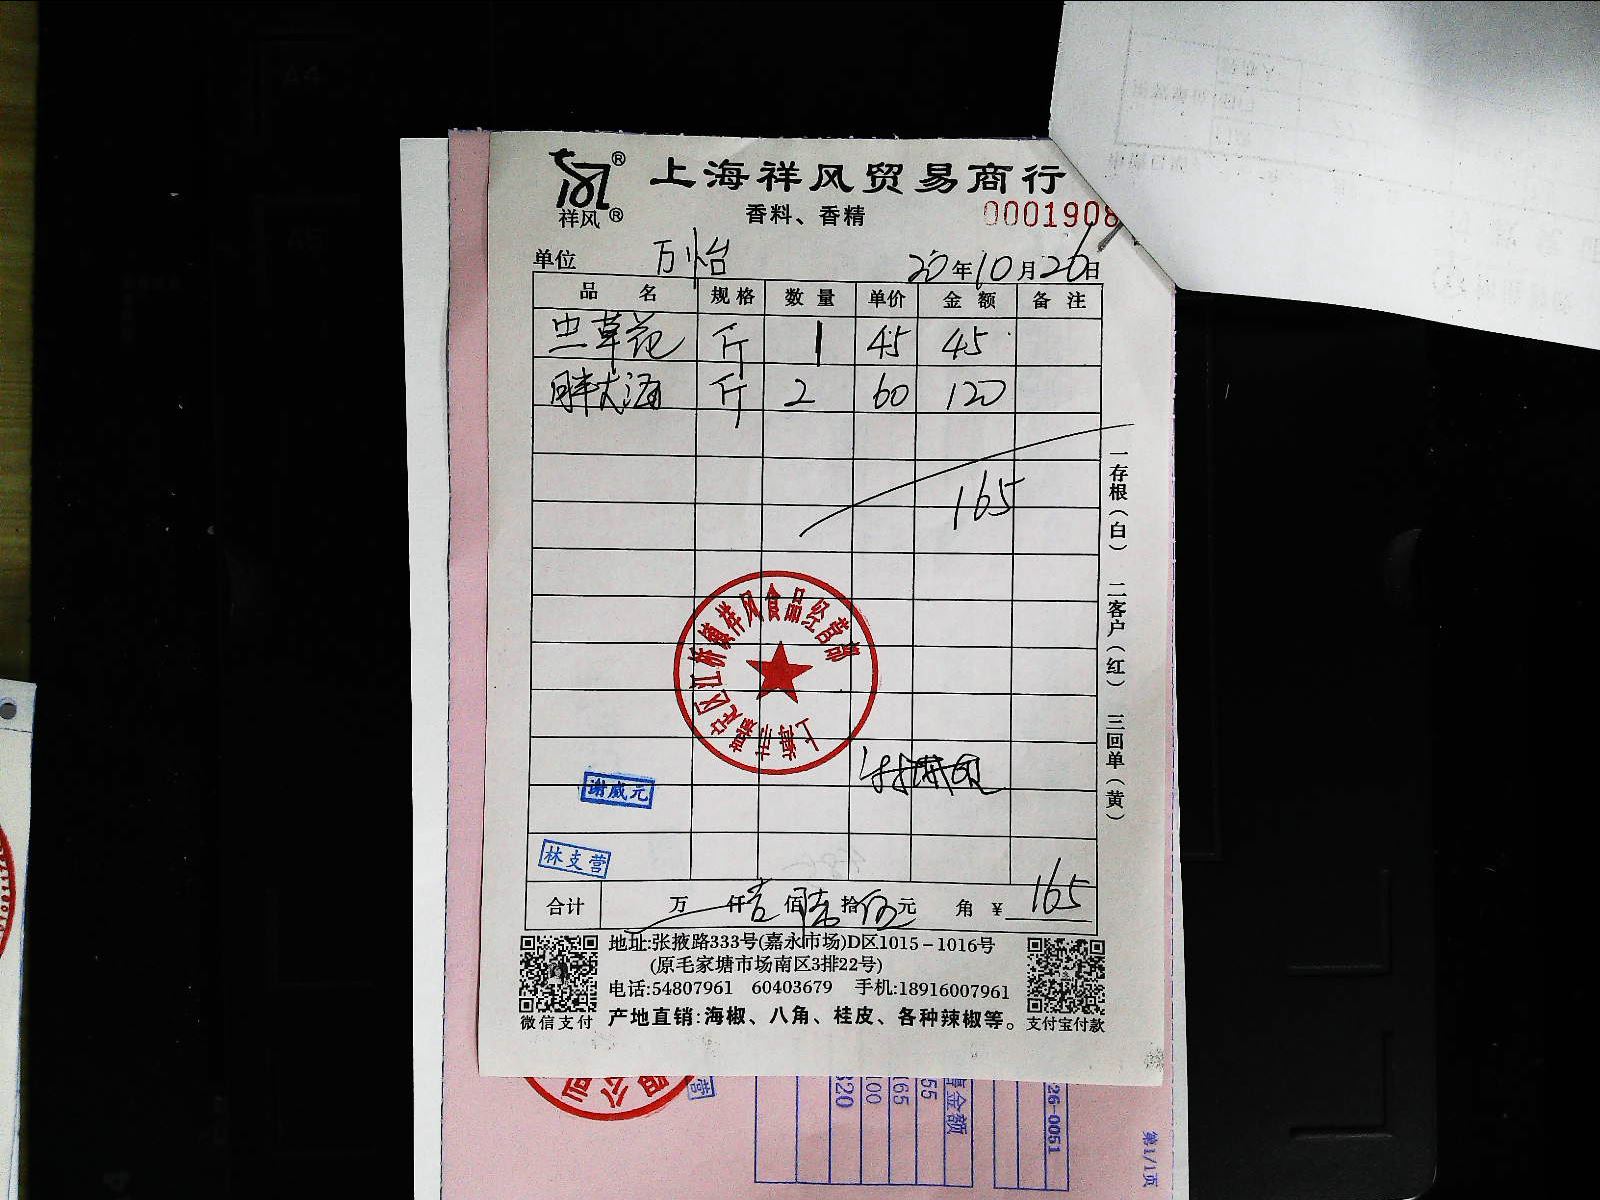 上海祥风贸易商行
祥风
香料、香精
0001908
单位 万怡 20年10月26日
品名 规格 数量 单价 金额 备注
虫草花 斤 1 45 45
胖大海 斤 2 60 120
165
一存根(白) 二客户(红) 三回单(黄)
上海市嘉定区江桥镇祥风食品经营部
谢威元
林支营
合计 万 仟壹佰陆拾伍元 角 ¥165
地址:张掖路333号(嘉永市场)D区1015-1016号
(原毛家塘市场南区3排22号)
电话:54807961 60403679 手机:18916007961
产地直销:海椒、八角、桂皮、各种辣椒等。
微信支付
支付宝付款
限公司
营
金额
55
65
00
320
26-0051
第1/1页